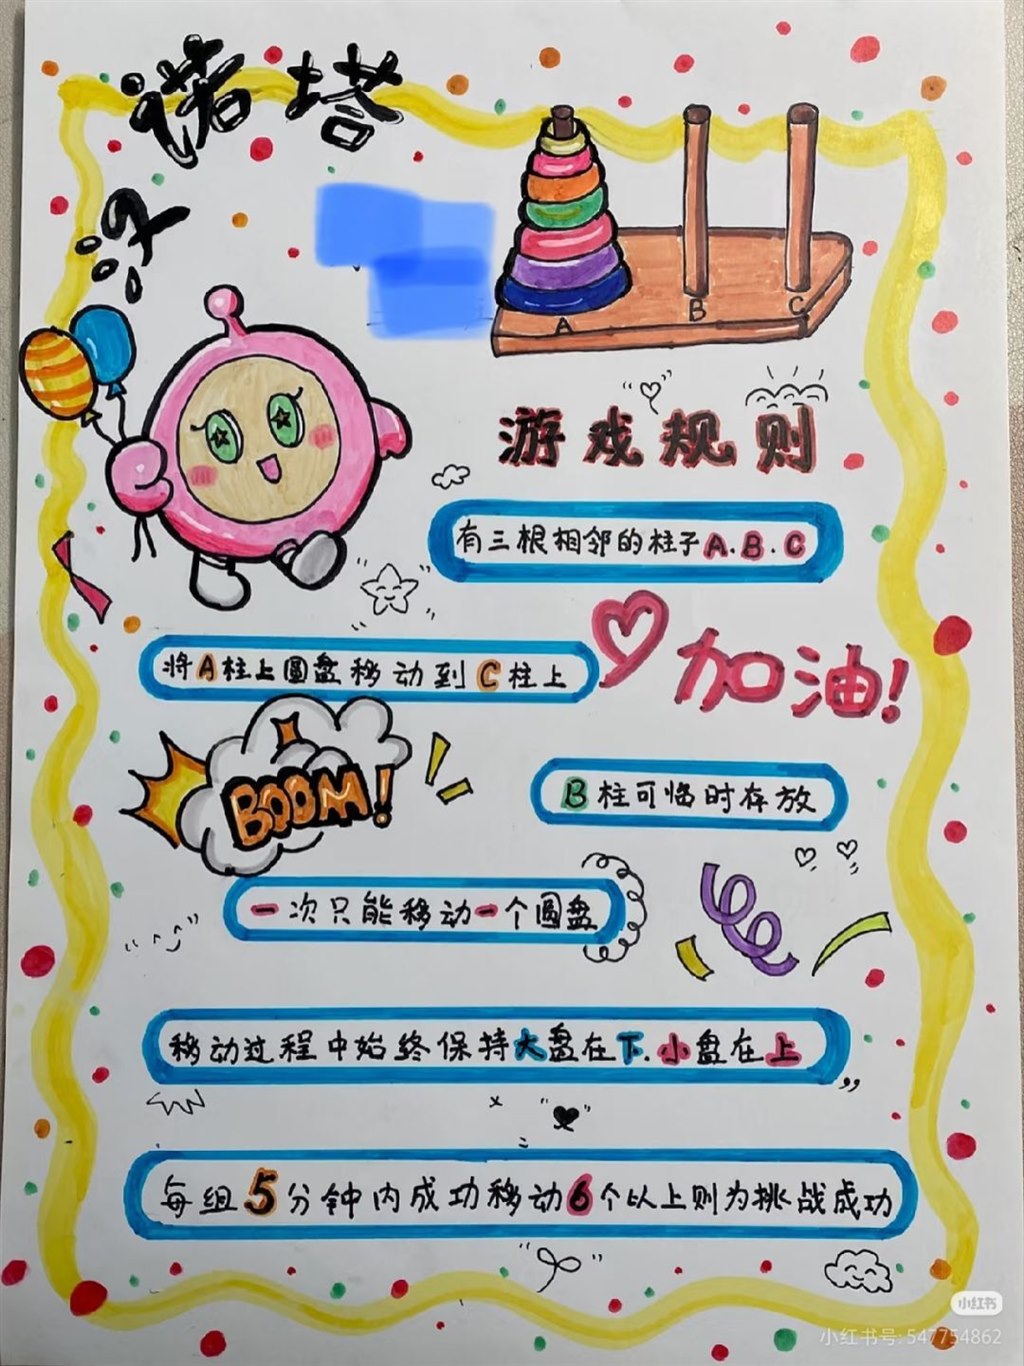 汉诺塔
A
B
C
游戏规则
有三根相邻的柱子A.B.C
将A柱上圆盘移动到C柱上
加油!
BOOM!
B柱可临时存放
一次只能移动一个圆盘
移动过程中始终保持大盘在下.小盘在上
每组5分钟内成功移动6个以上则为挑战成功
小红书
小红书号: 547754862